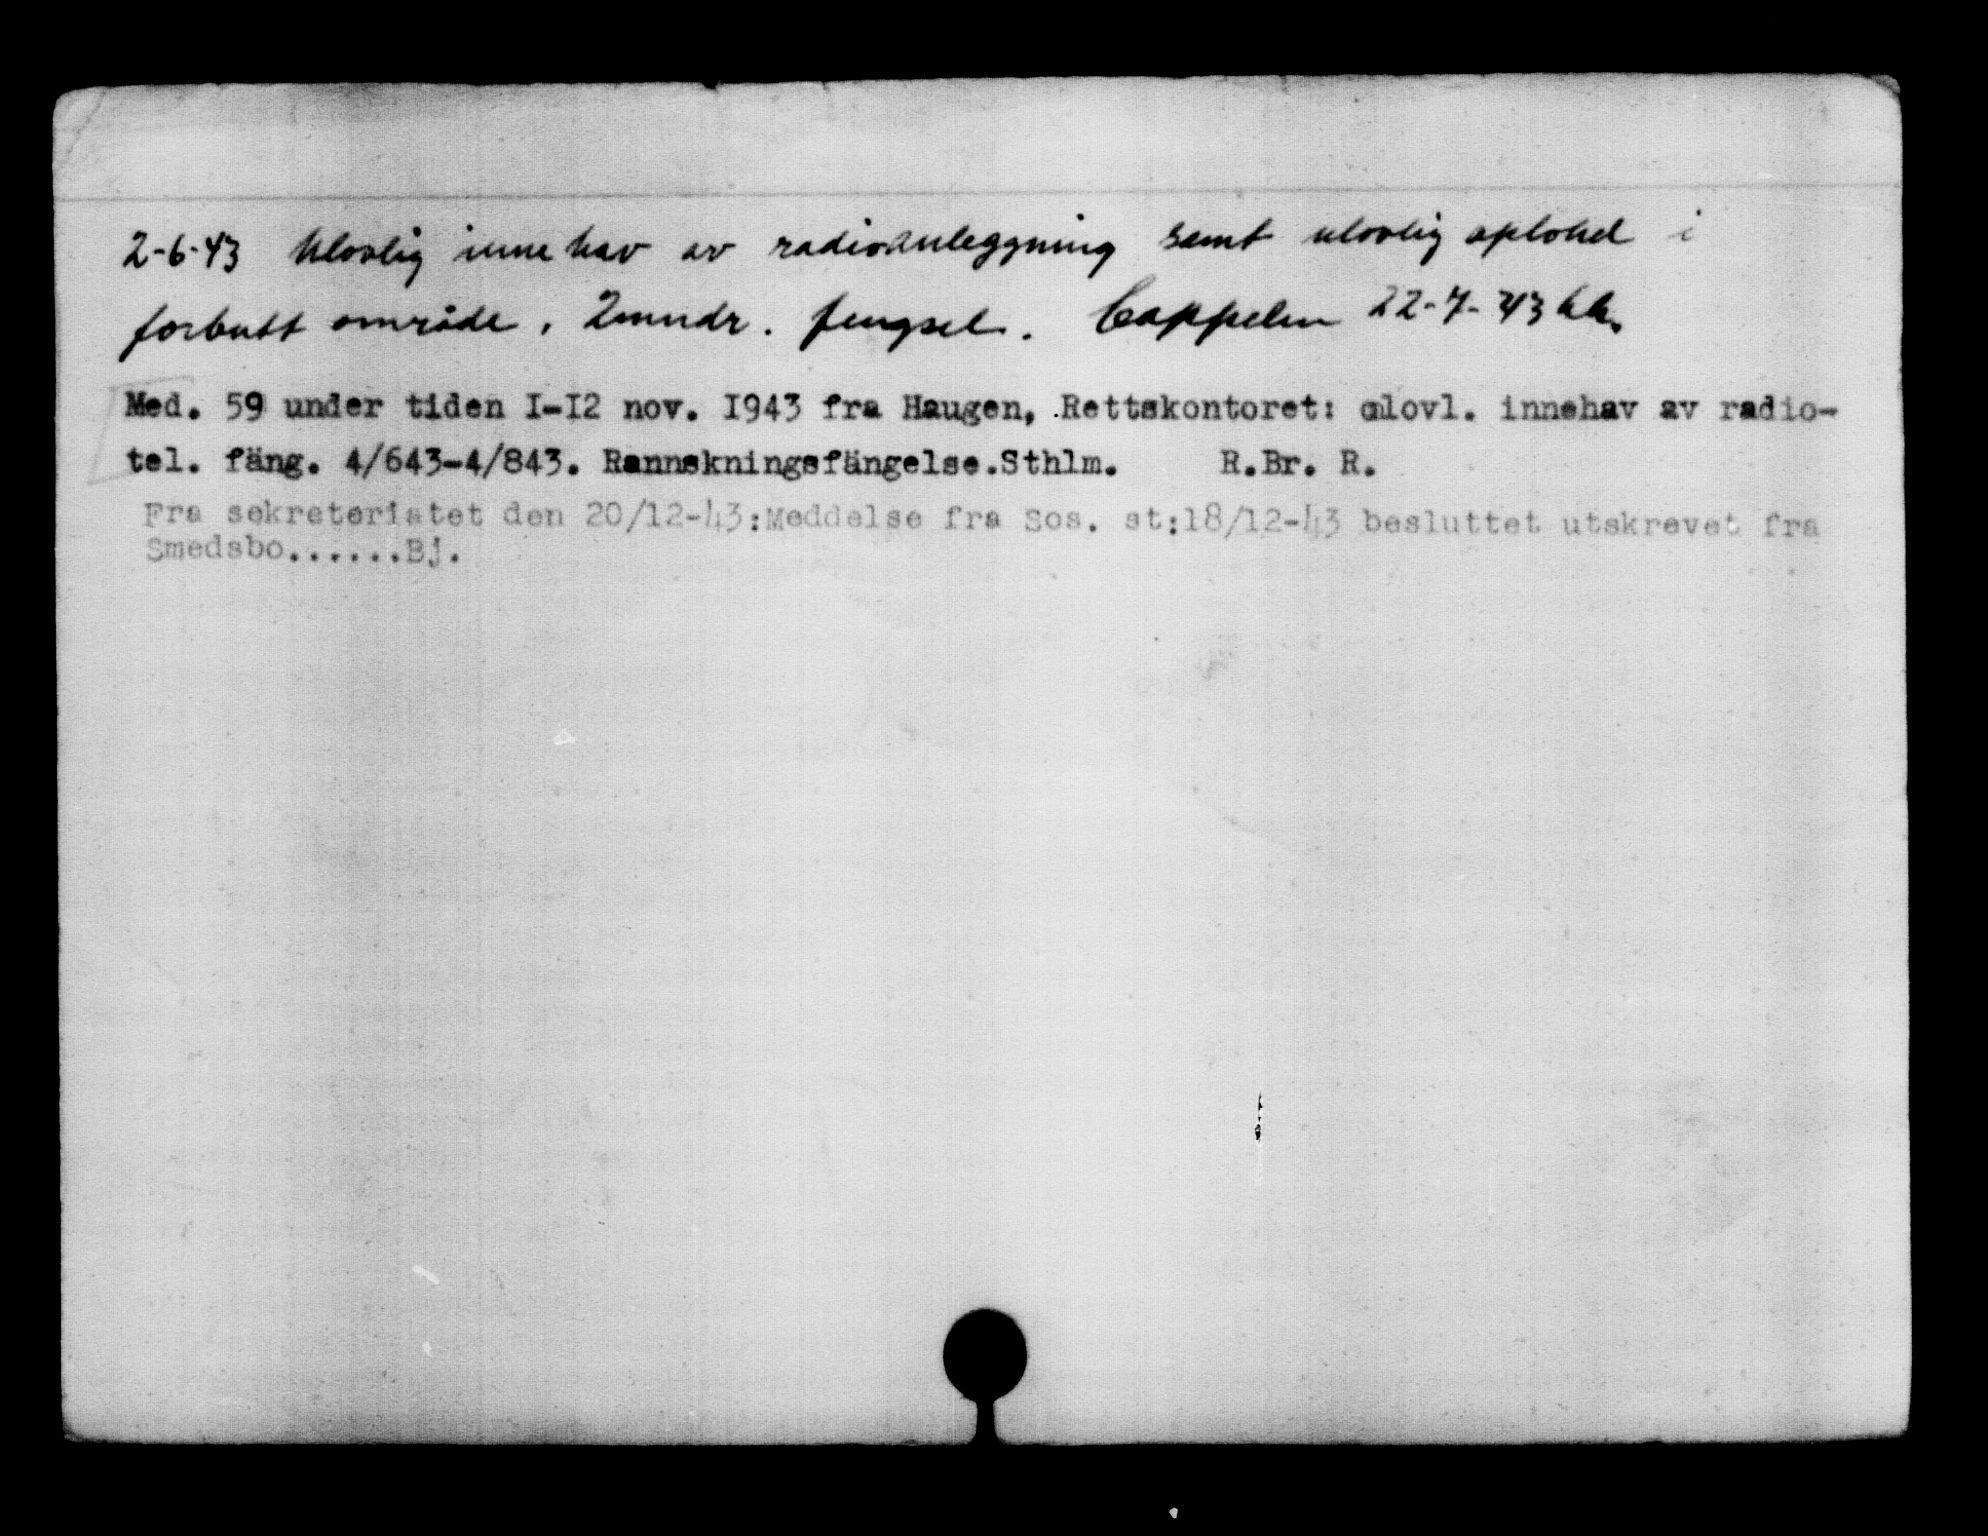 2-6-43 Ulovlig innehav av radioanleggning samt ulovlig ophold i
forbutt område. 2mndr. fengsel. Cappelen 22-7-43
Med. 59 under tiden I-I2 nov. I943 fra Haugen, Rettskontoret: olovl. innehav av radio-
tel. fäng. 4/643-4/843. Rannskningsfängelse.Sthlm. R.Br. R.
Fra sekreteriatet den 20/12-43:Meddelse fra Sos. st:18/12-43 besluttet utskrevet fra
Smedsbo......Bj.